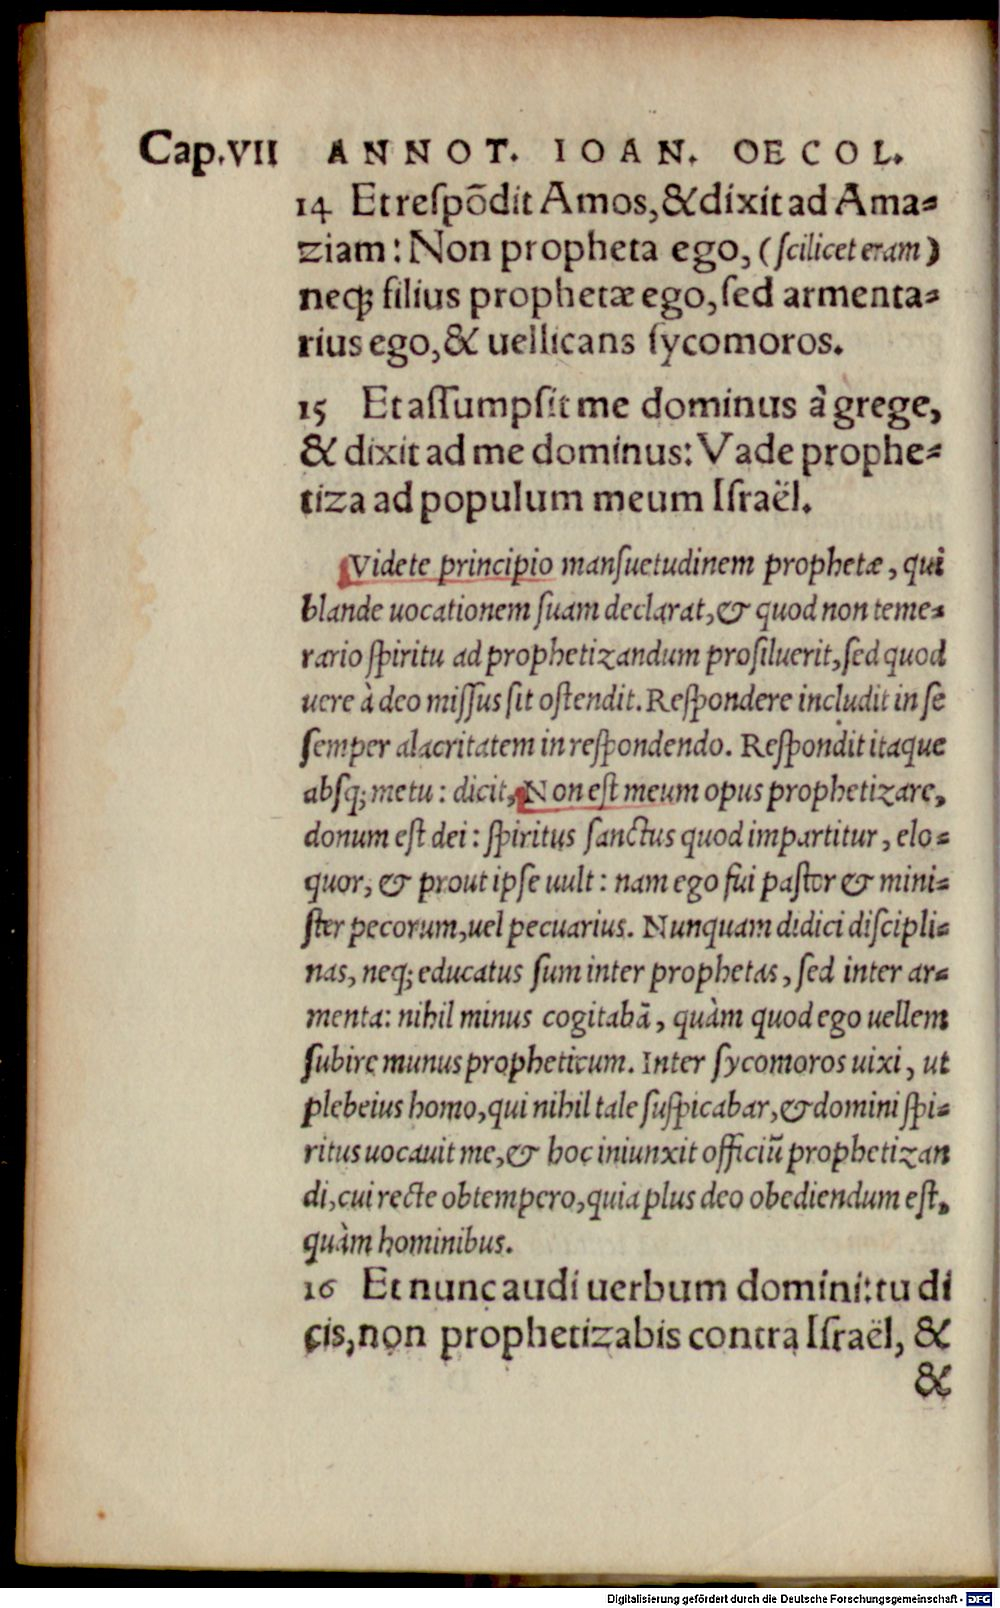 Cap.VII ANNOT. IOAN. OECOL.
14 Et respõdit Amos, & dixit ad Ama=
ziam: Non propheta ego, (ſcilicet eram)
neqꝫ filius prophetæ ego, ſed armenta=
rius ego, & uellicans ſycomoros.
15 Et aſſumpſit me dominus à grege,
& dixit ad me dominus: Vade prophe=
tiza ad populum meum Iſraël.
Videte principio manſuetudinem prophetæ, qui
blande uocationem ſuam declarat, & quod non teme=
rario ſpiritu ad prophetizandum proſiluerit, ſed quod
uere à deo miſſus ſit oſtendit. Reſpondere includit in ſe
ſemper alacritatem in reſpondendo. Reſpondit itaque
abſq; metu: dicit, Non eſt meum opus prophetizare,
donum eſt dei: ſpiritus ſanctus quod impartitur, elo=
quor, & prout ipſe uult: nam ego fui paſtor & mini=
ſter pecorum, uel pecuarius. Nunquam didici diſcipli=
nas, neq; educatus ſum inter prophetas, ſed inter ar=
menta: nihil minus cogitabã, quàm quod ego uellem
ſubire munus propheticum. Inter ſycomoros uixi, ut
plebeius homo, qui nihil tale ſuſpicabar, & domini ſpi=
ritus uocauit me, & hoc iniunxit officiũ prophetizan
di, cui recte obtempero, quia plus deo obediendum eſt,
quàm hominibus.
16 Et nunc audi uerbum domini: tu di
cis, non prophetizabis contra Iſraël, &
&
Digitalisierung gefördert durch die Deutsche Forschungsgemeinschaft - DFG